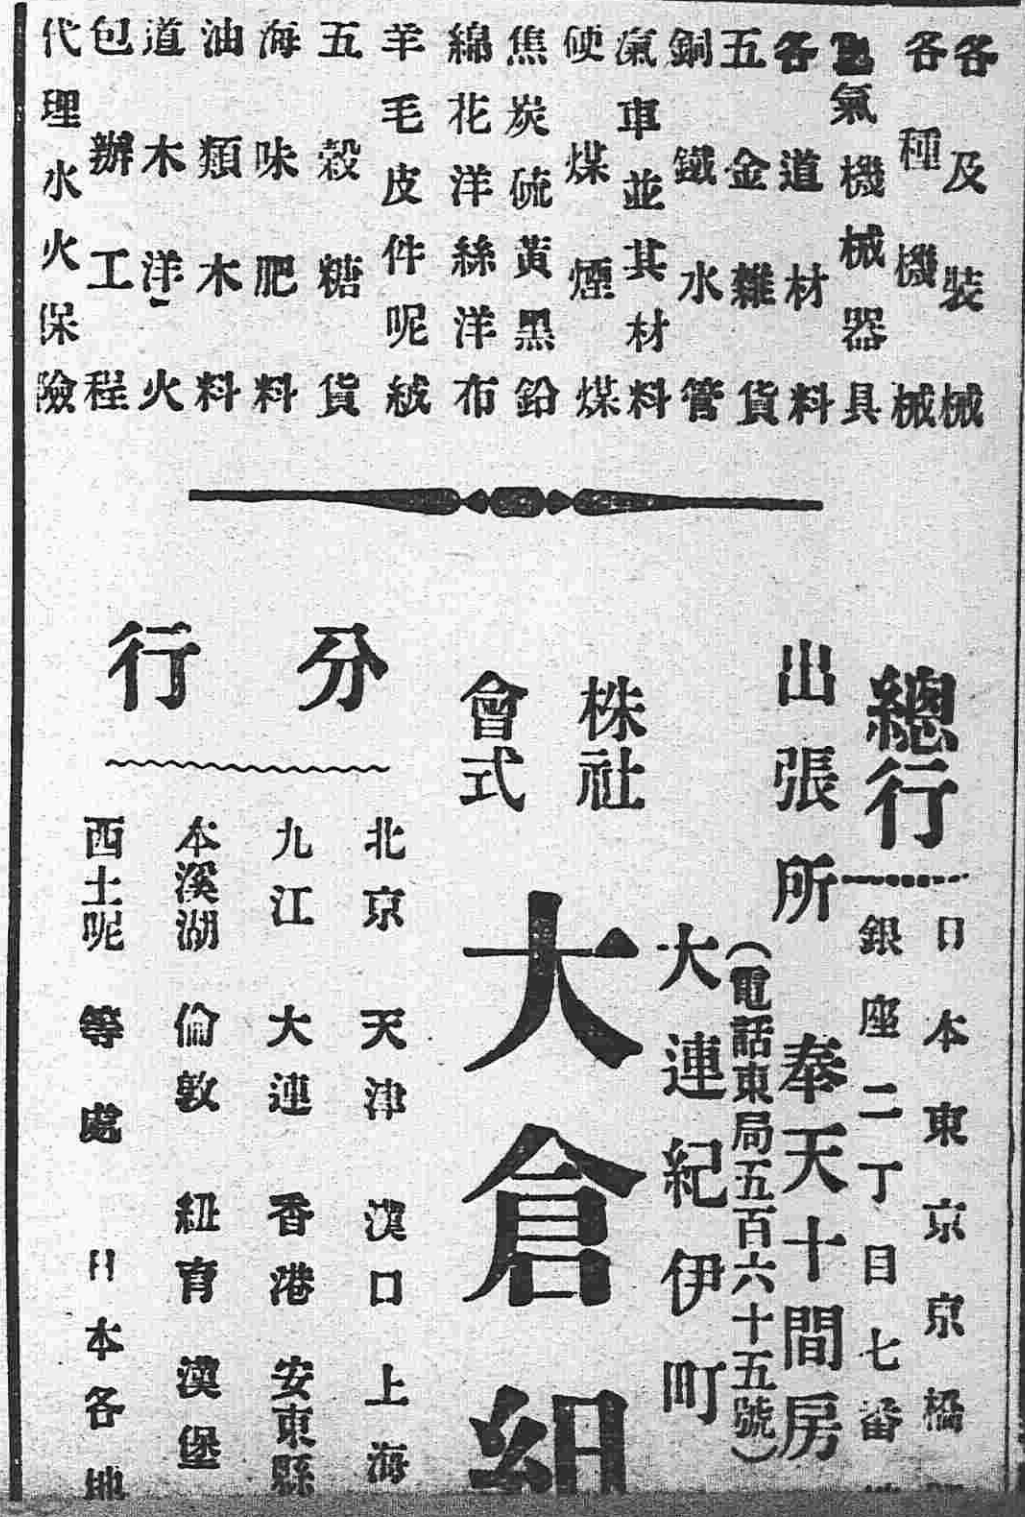 各及裝械
各種機械
電氣機械器具
各道材料
五金雜貨
銅鐵水管
滊車並其材料
硬煤煙煤
焦炭硫黃黑鉛
綿花洋絲洋布
羊毛皮件呢絨
五穀糖貨
海味肥料
油類木料
道木洋火
包辦工程
代理水火保險
總行
日本東京京橋
銀座二丁目七番
出張所
奉天十間房
(電話東局五百六十五號)
大連紀伊町
株式會社
大倉組
分行
北京 天津 漢口 上海
九江 大連 香港 安東縣
本溪湖 倫敦 紐育 漢堡
西土呢 等處 日本各地